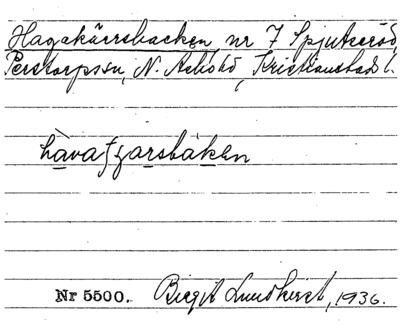 Hagakärrsbacken, nr 7 Spjutseröd,
Perstorps sn, N. Åsbo hd, Kristianstads l.
Nr 5500. Birgit Lundkvist, 1936.